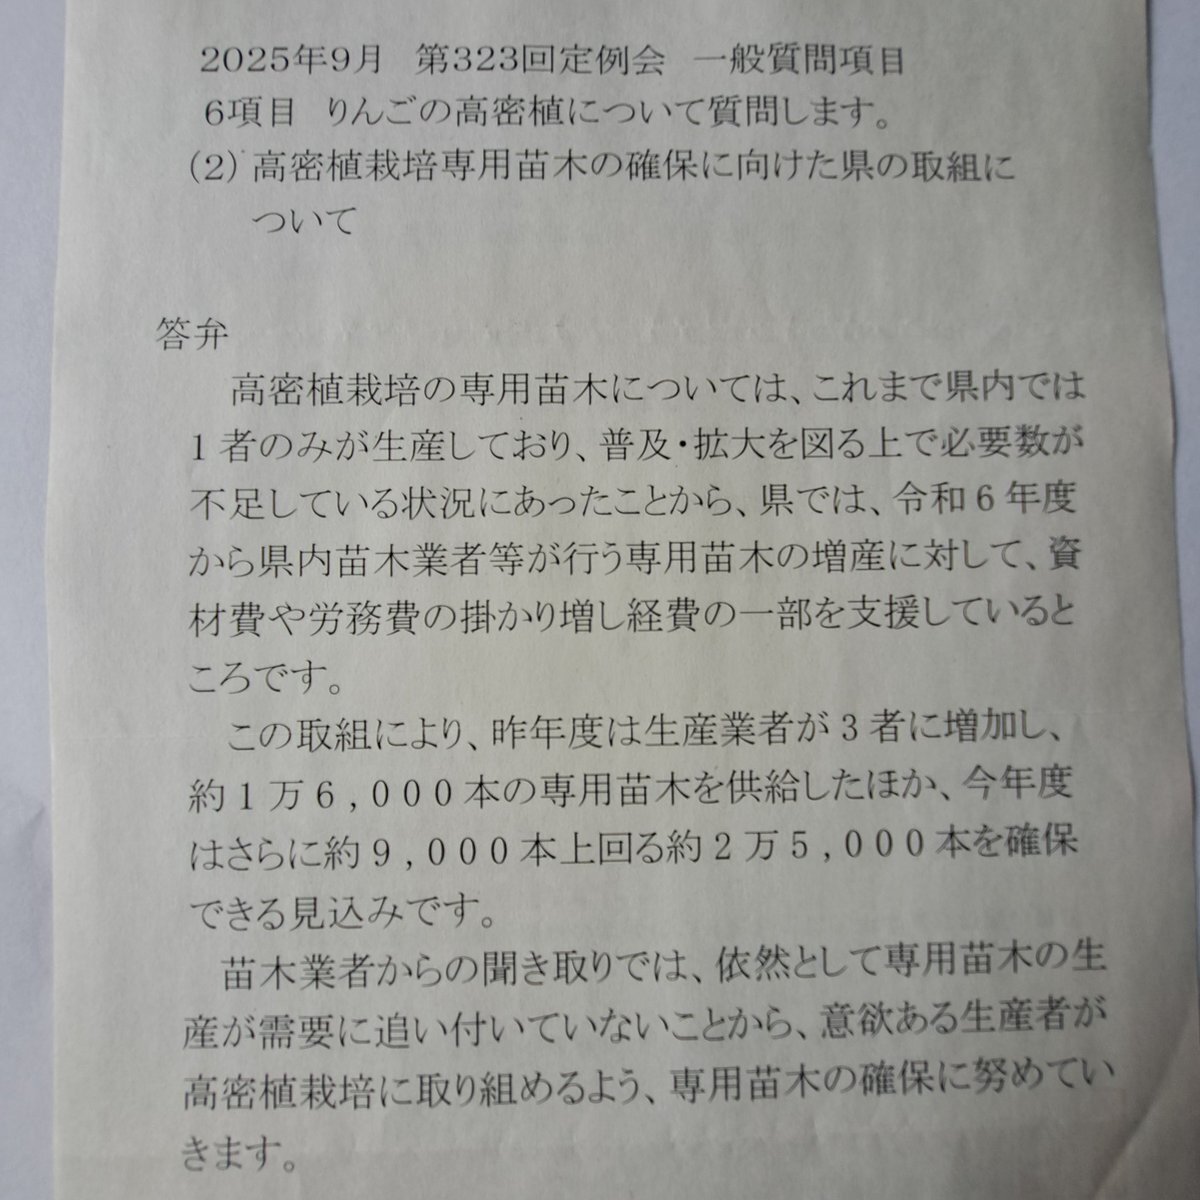 2025年9月　第323回定例会　一般質問項目
6項目　りんごの高密植について質問します。
(2) 高密植栽培専用苗木の確保に向けた県の取組に
ついて
答弁
高密植栽培の専用苗木については、これまで県内では
1者のみが生産しており、普及・拡大を図る上で必要数が
不足している状況にあったことから、県では、令和6年度
から県内苗木業者等が行う専用苗木の増産に対して、資
材費や労務費の掛かり増し経費の一部を支援していると
ころです。
この取組により、昨年度は生産業者が3者に増加し、
約1万6,000本の専用苗木を供給したほか、今年度
はさらに約9,000本上回る約2万5,000本を確保
できる見込みです。
苗木業者からの聞き取りでは、依然として専用苗木の生
産が需要に追い付いていないことから、意欲ある生産者が
高密植栽培に取り組めるよう、専用苗木の確保に努めてい
きます。